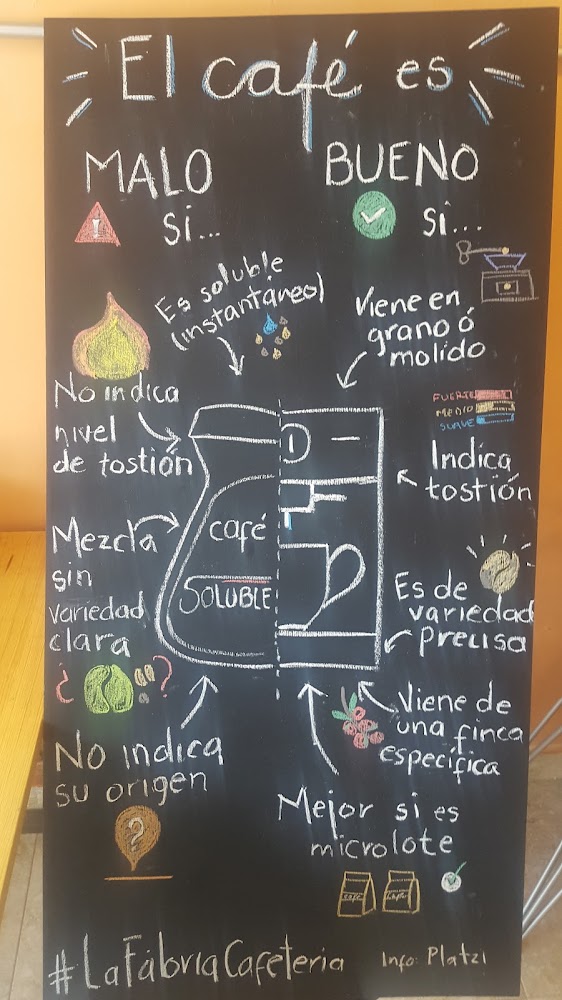 El café es
MALO
si...
BUENO
si...
Es soluble
(instantáneo)
No indica
nivel
de tostión
Mezcla
sin
variedad
clara
¿ ?
No indica
su origen
?
café
SOLUBLE
Viene en
grano ó
molido
FUERTE
MEDIO
SUAVE
Indica
tostión
Es de
variedad
precisa
Viene de
una finca
específica
Mejor si es
microlote
café
#LaFábriaCafeteria
Info: Platzi